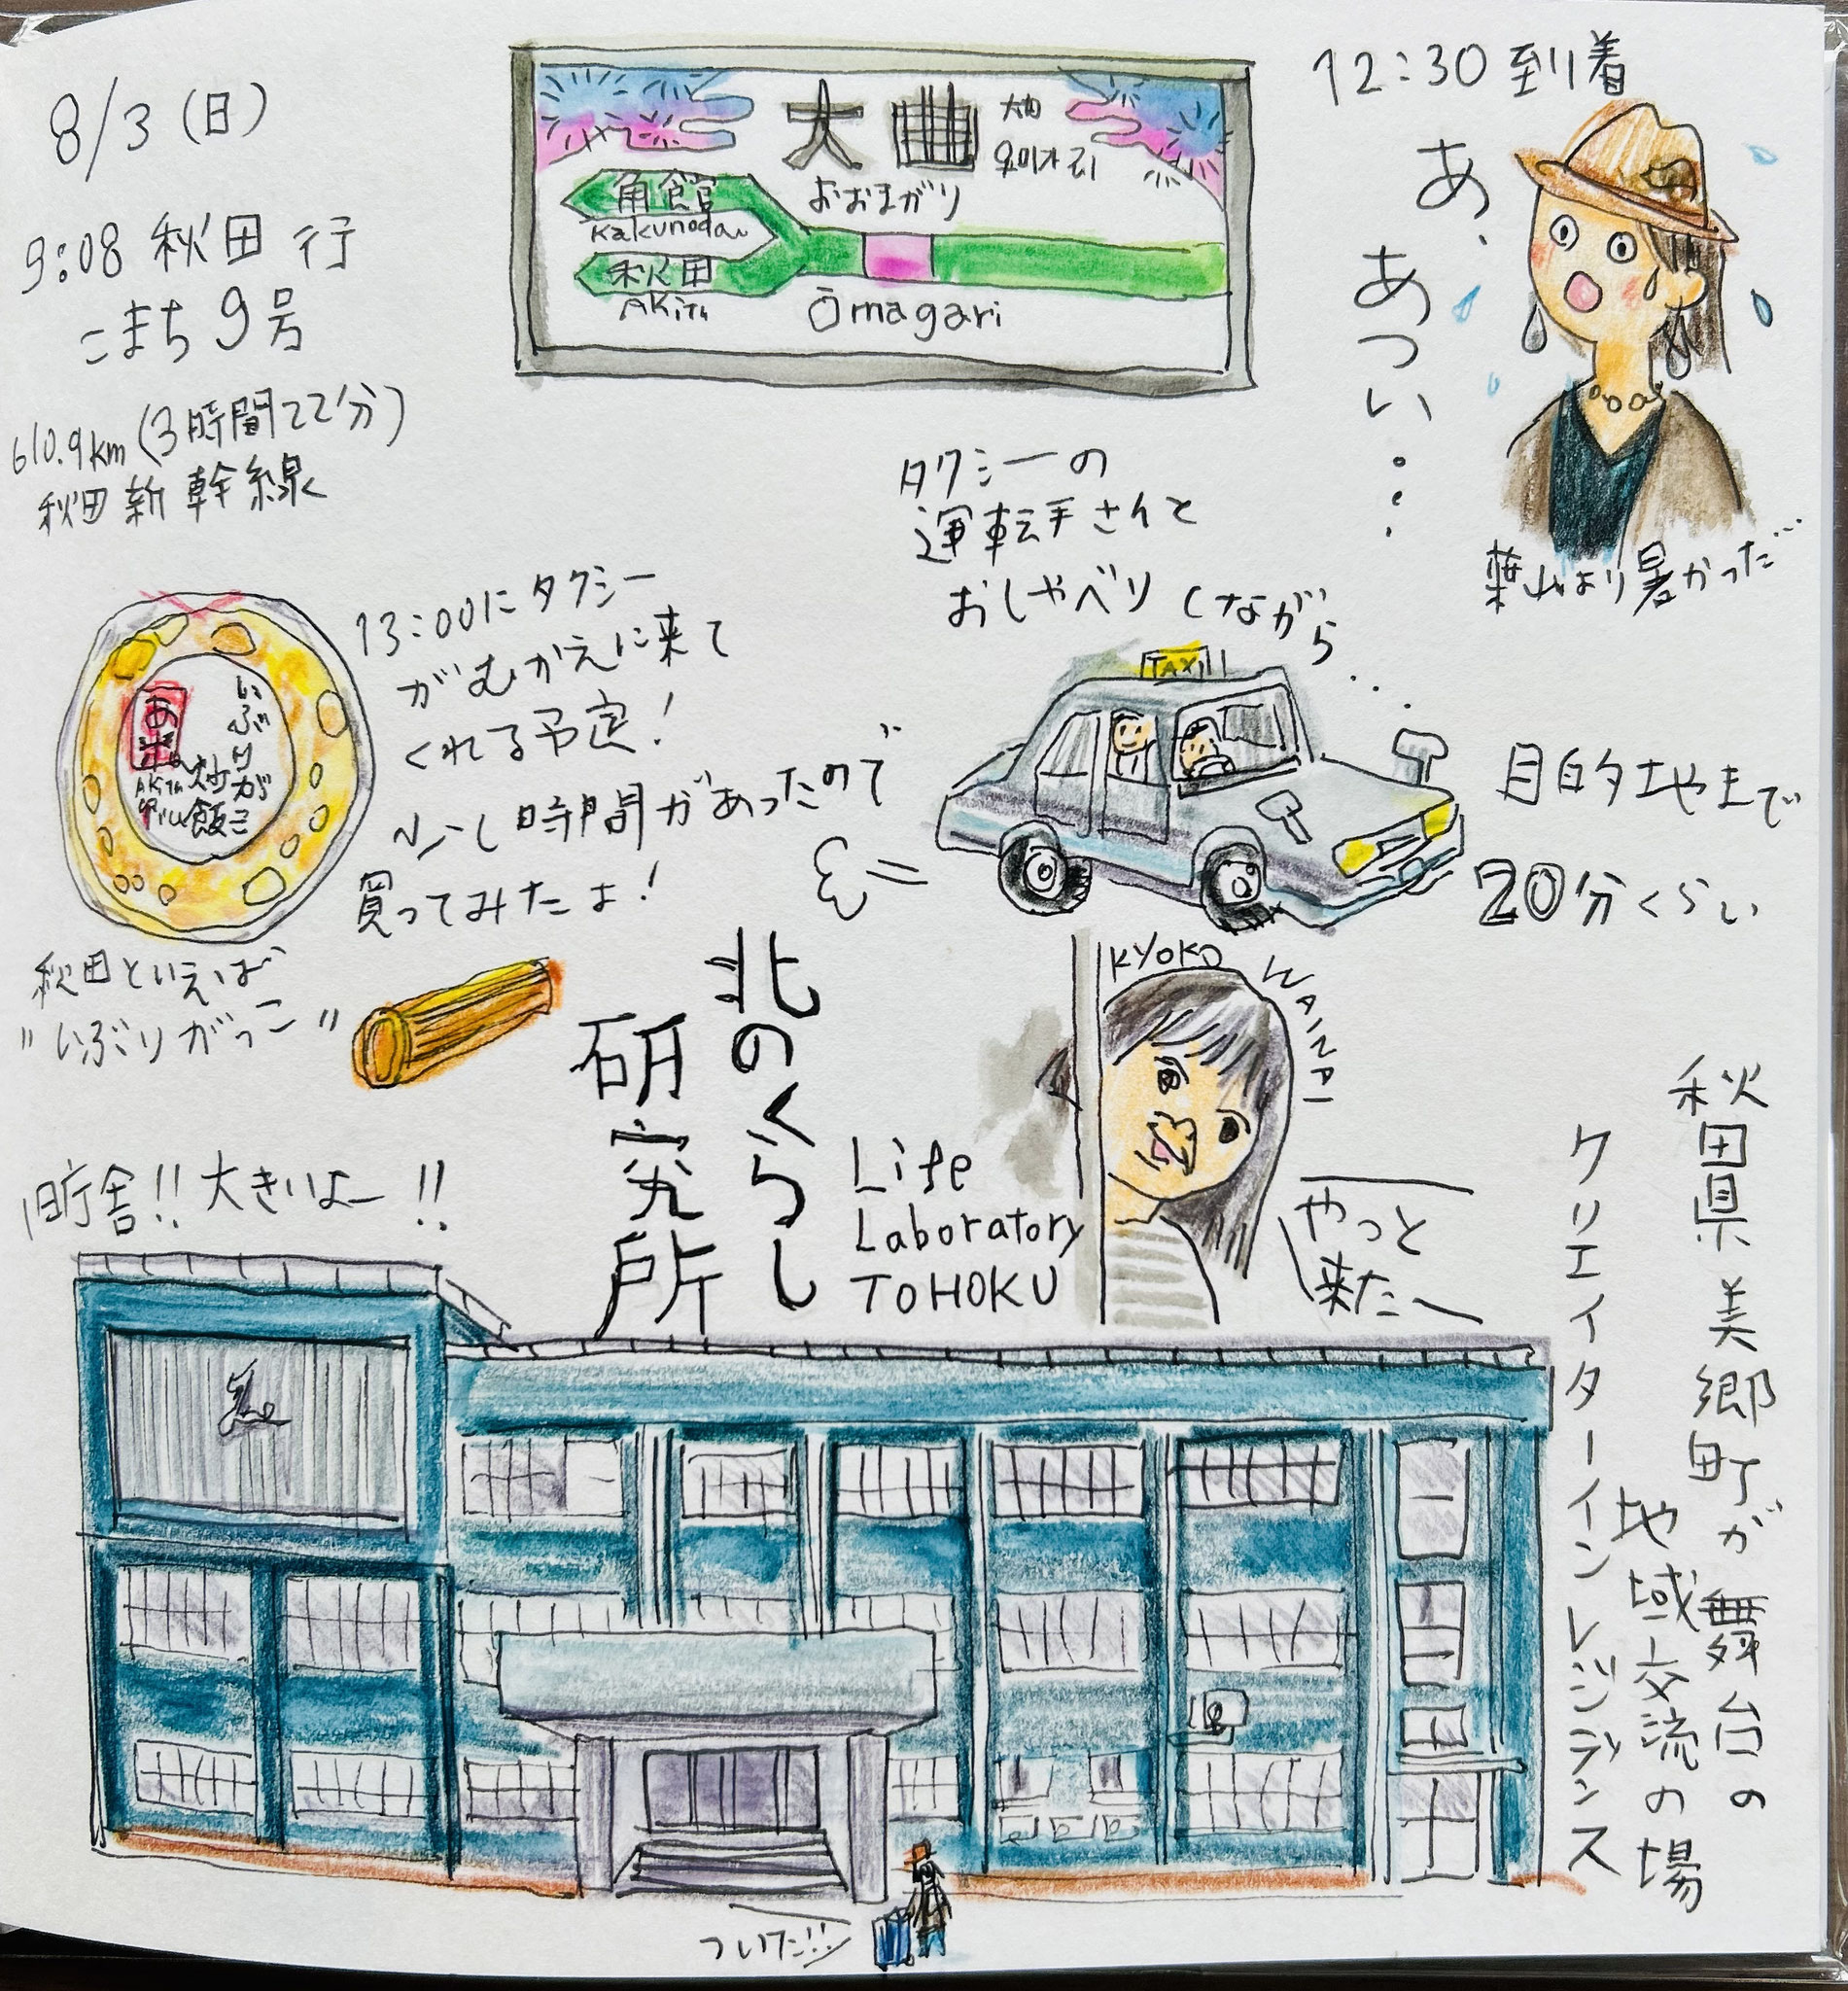 8/3(日)
9:08 秋田 行
こまち 9号
610.9km(3時間22分)
秋田新幹線
大曲
おおまがり
角館
Kakunodate
秋田
AKiTA
Ōmagari
12:30 到着
あ、
あつい・・・・
葉山より暑かった…
タクシーの
運転手さんと
おしゃべりしながら・・・
TAXI
目的地まで
20分くらい
13:00にタクシー
がむかえに来て
くれる予定!
少し時間があったので
買ってみたよ!
いぶりがっこ
炒飯
AKiTA
秋田といえば
"いぶりがっこ"
北のくらし
研究所
Life
Laboratory
TOHOKU
KYOKO
WAINAI
やっと
来たー
旧庁舎!!大きいよー!!
秋田県 美郷町が舞台の
地域交流の場
クリエイターインレジデンス
ついた!!